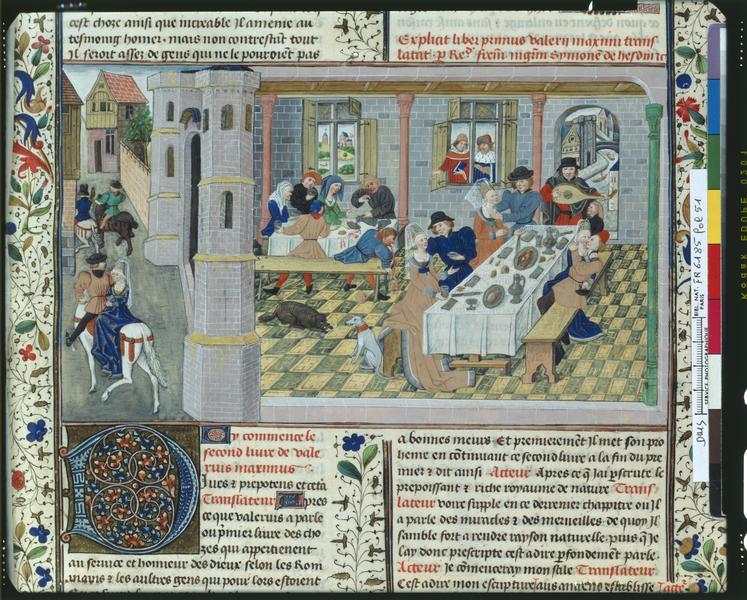 cest chose ainsi que increable Il amenie au
tesmoing homer. mais non contrestāt tout
Il seroit assez de gens qui ne le pouroiēt pas
Explicit liber primus valerij maximi trans
latat. p Red frem mgrm Symonē de hesdin
y commence le
second livre de vale
rius maximus
Iures & prepotens et cetā
Translateur Apres
ce que valerius a parle
ou pmier livre des cho
zes qui appertienent
au service et honneur des dieux selon les Rom
mains & les aultres gens qui pour lors estoient
a bonnes meurs Et premieremēt Il met son pro
heme en cōtinuant ce second livre a la fin du pre
mier & dit ainsi Acteur Apres ce q Jai pscrute le
prepoissant & riche royaume de nature Trans
lateur voire supple en ce derrenier chappitre ou Il
a parle des miracles & des merveilles de quoy Il
samble fort a rendre rayson naturelle puis q Je
lay donc prescripte cest adire pfondement parle
Acteur Je cōmenceray mon stile Translateur
Cest adire mon escripture aus anciens establisse
BIBL. NAT. PARIS
FR 6185 Fol 51
SERVICE PHOTOGRAPHIQUE